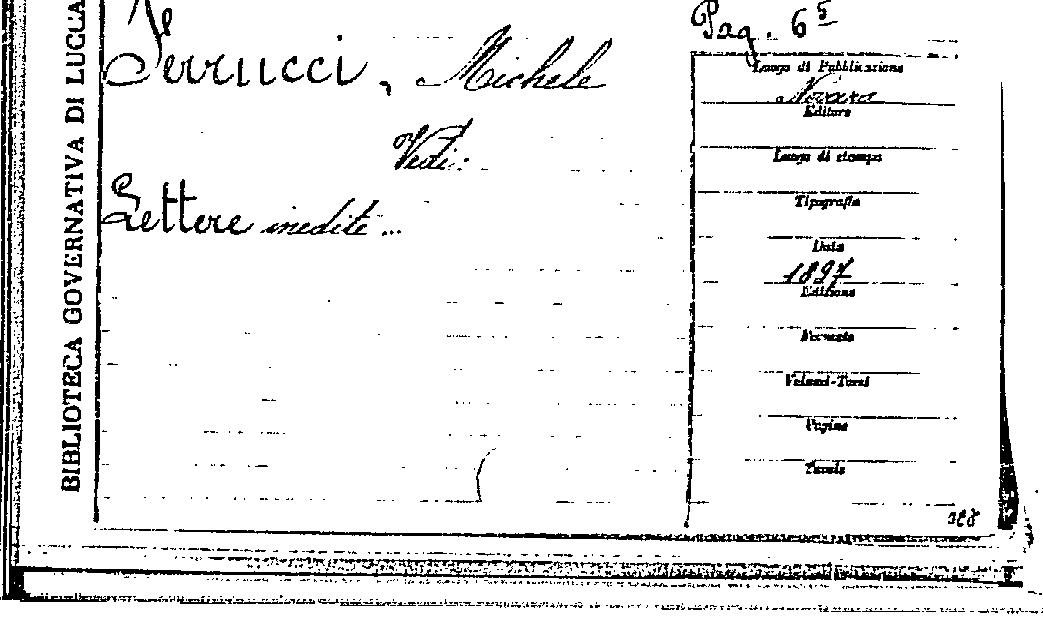 BIBLIOTECA GOVERNATIVA DI LUCCA
Pag. 65
Ferrucci, Michele
Vedi:
Lettere inedite...
Luogo di Pubblicazione
Novara
Editore
Luogo di stampa
Tipografia
Data
1897
Edizione
Formato
Volumi-Tomi
Pagine
Tavole